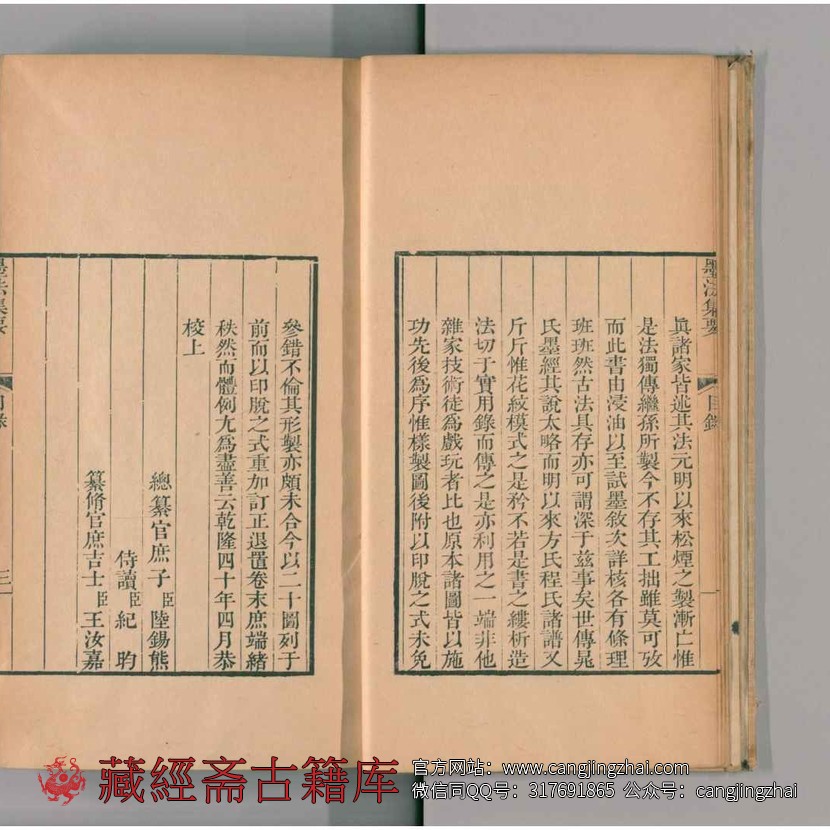 墨法集要
目錄
眞諸家皆述其法元明以來松煙之製漸亡惟
是法獨傳繼孫所製今不存其工拙雖莫可攷
而此書由浸油以至試墨敘次詳核各有條理
班班然古法具存亦可謂深于茲事矣世傳晁
氏墨經其說太略而明以來方氏程氏諸譜又
斤斤惟花紋模式之是矜不若是書之縷析造
法切于實用錄而傳之是亦利用之一端非他
雜家技術徒爲戲玩者比也原本諸圖皆以施
功先後爲序惟樣製圖後附以印脫之式未免
參錯不倫其形製亦頗未合今以二十圖列于
前而以印脫之式重加訂正退置卷末庶端緒
秩然而體例尢爲盡善云乾隆四十年四月恭
校上
總纂官庶子臣陸錫熊
侍讀臣紀昀
纂脩官庶吉士臣王汝嘉
墨法集要
目錄
三
藏經斋古籍库
官方网站：www.cangjingzhai.com
微信同QQ号：317691865 公众号：cangjingzhai